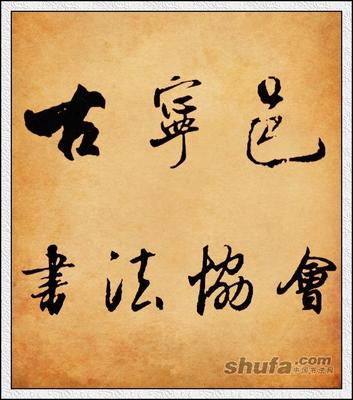 古寧邑
書法協會
shufa.com
中国书法网